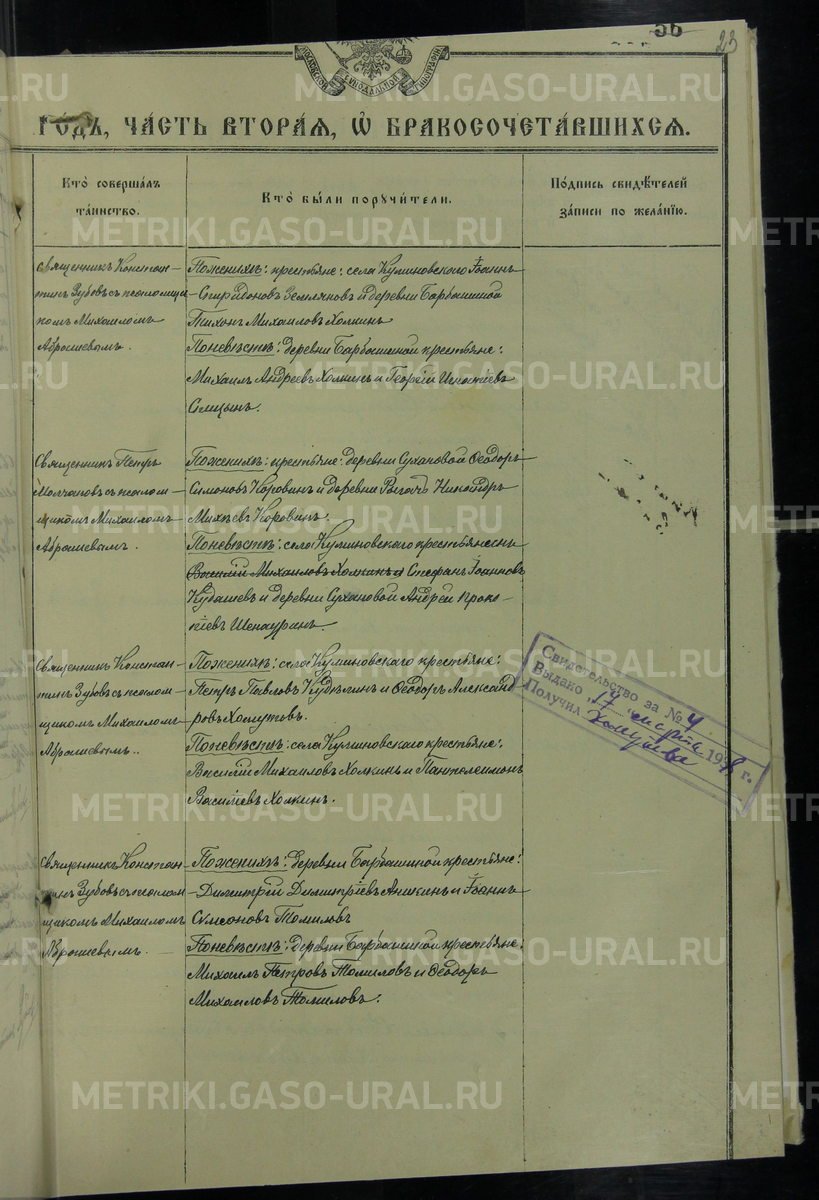 56
23
МОСКОВСКОЙ СѴНОДАЛЬНОЙ ТИПОГРАФІИ
METRIKI.GASO-URAL.RU
ГО́ДЪ, ЧА́СТЬ ВТОРА́Я, Ѡ҆ БРАКОСОЧЕТА́ВШИХСЯ.
Кто̀ соверша́лъ
та́инство.
Кто̀ бы́ли поручи́тели.
По́дпись свидѣ́телей
за́писи по жела́нію.
Священникъ Констан-
тинъ Зубовъ съ псаломщи-
комъ Михаиломъ
Аврошевымъ.
По женихѣ: крестьяне: села Куминовскаго Іоаннъ
Спиридоновъ Земляновъ и деревни Барбашиной
Тихонъ Михаиловъ Холкинъ
По невѣстѣ: деревни Барбашиной крестьяне:
Михаилъ Андреевъ Холкинъ и Георгій Игнатіевъ
Священникъ Петръ
Молчановъ съ псалом-
щикомъ Михаиломъ
Аврошевымъ.
По женихѣ: крестьяне: деревни Сухановой Ѳеодоръ
Симоновъ Коровинъ и деревни Никандръ
Михѣевъ Коровинъ.
По невѣстѣ: села Куминовскаго крестьянинъ
Василій Михаиловъ Холкинъ и Стефанъ Іоанновъ
Кудашевъ и деревни Сухановой Андрей Проко-
піевъ
Священникъ Констан-
тинъ Зубовъ съ псалом-
щикомъ Михаиломъ
Аврошевымъ.
По женихѣ: села Куминовскаго крестьяне:
Петръ Павловъ Кудѣлинъ и Ѳеодоръ Александ
ровъ Хомутовъ.
По невѣстѣ: села Куминовскаго крестьяне:
Василій Михаиловъ Холкинъ и Пантелеимонъ
Василіевъ Холкинъ.
Свидетельство за № 4
Выдано „17 “ марта 19 г.
Получил
Священникъ Констан-
тинъ Зубовъ съ псалом
щикомъ Михаиломъ
Аврошевымъ.
По женихѣ: деревни Барбашиной крестьяне:
Димитрій Димитріевъ Аникинъ и Іоаннъ
Сѵмеоновъ Томиловъ
По невѣстѣ: деревни Барбашиной крестьяне:
Михаилъ Петровъ Томиловъ и Ѳеодоръ
Михаиловъ Томиловъ.